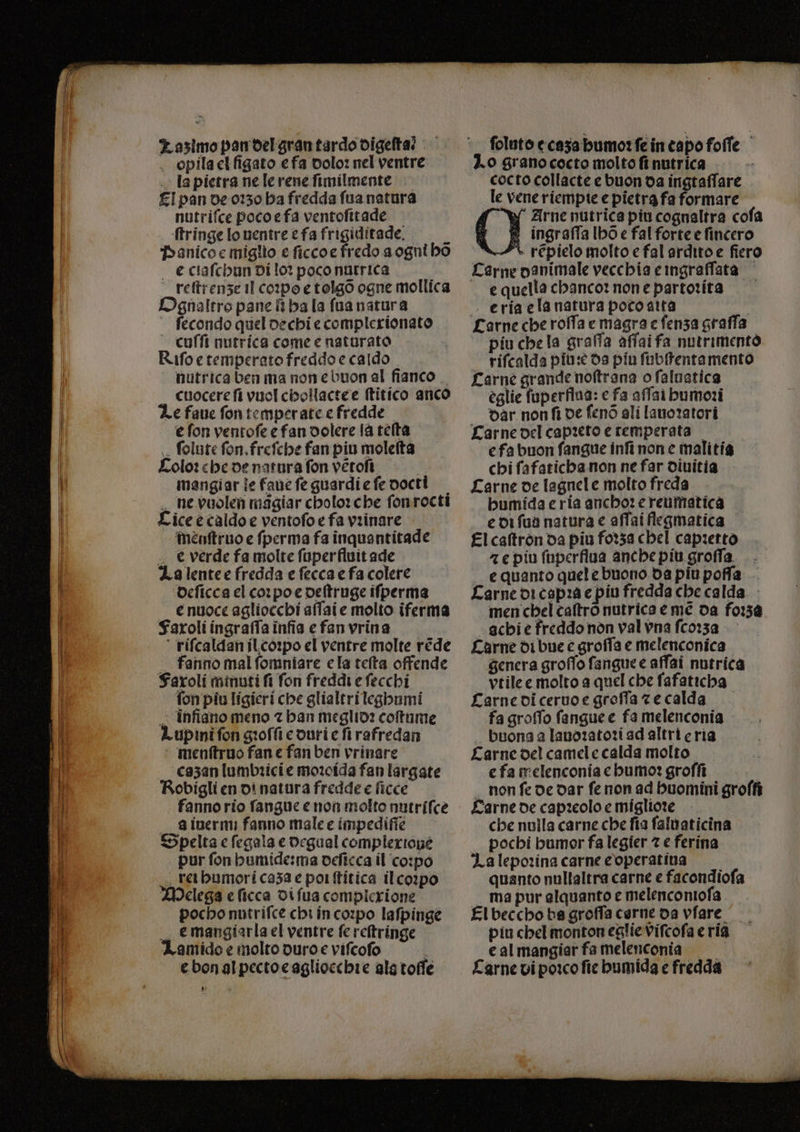 Lazimo pan del gran tardo digesta:
opila el figato e fa doloꝛ nel ventre
la pietra ne le rene ſimilmente
El pan de oꝛzo ha fredda ſua natura
nutriſce poco e fa ventoſitade
ſtringe lo uentre e fa frigiditade.
Panico e miglio e ſicco e fredo a ogni hõ
e ciaſchun di loꝛ poco nutrica
reſtrenze il coꝛpo e tolgõ ogne mollica
Ognaltro pane ſi ha la ſua natura
ſecondo quel de chi e complexionato
cuſſi nutrica come e naturato
Riſo e temperato freddo e caldo
nutrica ben ma non e buon al fianco
cuocere ſi vuol cbollacte e ſtitico anco
Le faue ſon temperate e fredde
e ſon ventoſe e fan dolere la teſta
ſolute ſon.freſche fan piu moleſta
Coloꝛ che de natura ſon vẽtoſi
mangiar le faue ſe guardi e ſe docti
ne vuolen mãgiar choloꝛ che ſon rocti
Cice e caldo e ventoſo e fa vꝛinare
menſtruo e ſperma fa inquantitade
e verde fa molte ſuperfluitade
La lente e fredda e ſecca e fa colere
deſicca el coꝛpo e deſtruge iſperma
e nuoce agliocchi aſſai e molto iferma
Faxoli ingraſſa infia e fan vrina
riſcaldan il coꝛpo el ventre molte rẽde
fanno mal ſomniare e la teſta offende
Faxoli minuti ſi ſon freddi e ſecchi
ſon piu ligieri che glialtri leghumi
inſiano meno ⁊ han meglioꝛ coſtume
Lupini ſon gꝛoſſi e duri e ſi rafredan
menſtruo fan e fan ben vrinare
cazan lumbꝛici e moꝛcida fan largate
Robigli en di natura fredde e ſicce
fanno rio ſangue e non molto nutriſce
a inermi fanno male e impediſſe
Spelta e ſegala e degual complexione
pur ſon humide:ma deſicca il coꝛpo
rei humori caza e poi ſtitica il coꝛpo
Melega e ſicca di ſua complexione
pocho nutriſce chi in coꝛpo laſpinge
e mangiarla el ventre ſe reſtringe
Lamido e molto duro e viſcoſo
e bon al pecto e agliocchi e ala toſſe
ſoluto e caza humoꝛ ſe in capo foſſe
Lo grano cocto molto ſi nutrica
cocto collacte e buon da ingraſſare
le vene riempie e pietra fa formare
CArne nutrica piu cognaltra coſa
ingraſſa lhõ e fal forte e ſincero
rẽpielo molto e fal ardito e fiero
Carne danimale vecchia e ingraſſata
e quella chancoꝛ non e partoꝛita
e ria e la natura poco aita
Carne che roſſa e magra e ſenza graſſa
piu che la graſſa aſſai fa nutrimento
riſcalda piu:e da piu ſubſtentamento
Carne grande noſtrana o ſaluatica
eglie ſuperflua: e fa aſſai humoꝛi
dar non ſi de ſenõ ali lauoꝛatori
Carne del capꝛeto e temperata
e fa buon ſangue inſi non e malitia
chi ſafaticha non ne far diuitia
Carne de lagnel e molto freda
humida e ria anchoꝛ e reumatica
e di ſua natura e aſſai flegmatica
El caſtron da piu foꝛza chel capꝛetto
⁊ e piu ſuperflua anche piu groſſa
e quanto quel e buono da piu poſſa
Carne di capꝛa e piu fredda che calda
men chel caſtrõ nutrica e mẽ da foꝛza
achi e freddo non val vna ſcoꝛza
Carne di bue e groſſa e melenconica
genera groſſo ſangue e aſſai nutrica
vtile e molto a quel che ſafaticha
Carne di ceruo e groſſa ⁊ e calda
fa groſſo ſangue e fa melenconia
buona a lauoꝛatoꝛi ad altri e ria
Carne del camel e calda molto
e fa melenconia e humoꝛ groſſi
non ſe de dar ſe non ad huomini groſſi
Carne de capꝛeolo e miglioꝛe
che nulla carne che ſia ſaluaticina
pochi humor fa legier ⁊ e ferina
La lepoꝛina carne e operatiua
quanto nullaltra carne e facondioſa
ma pur alquanto e melenconioſa
El beccho ha groſſa carne da vſare
piu chel monton eglie viſcoſa e ria
e al mangiar fa melenconia
Carne di poꝛco ſie humida e fredda